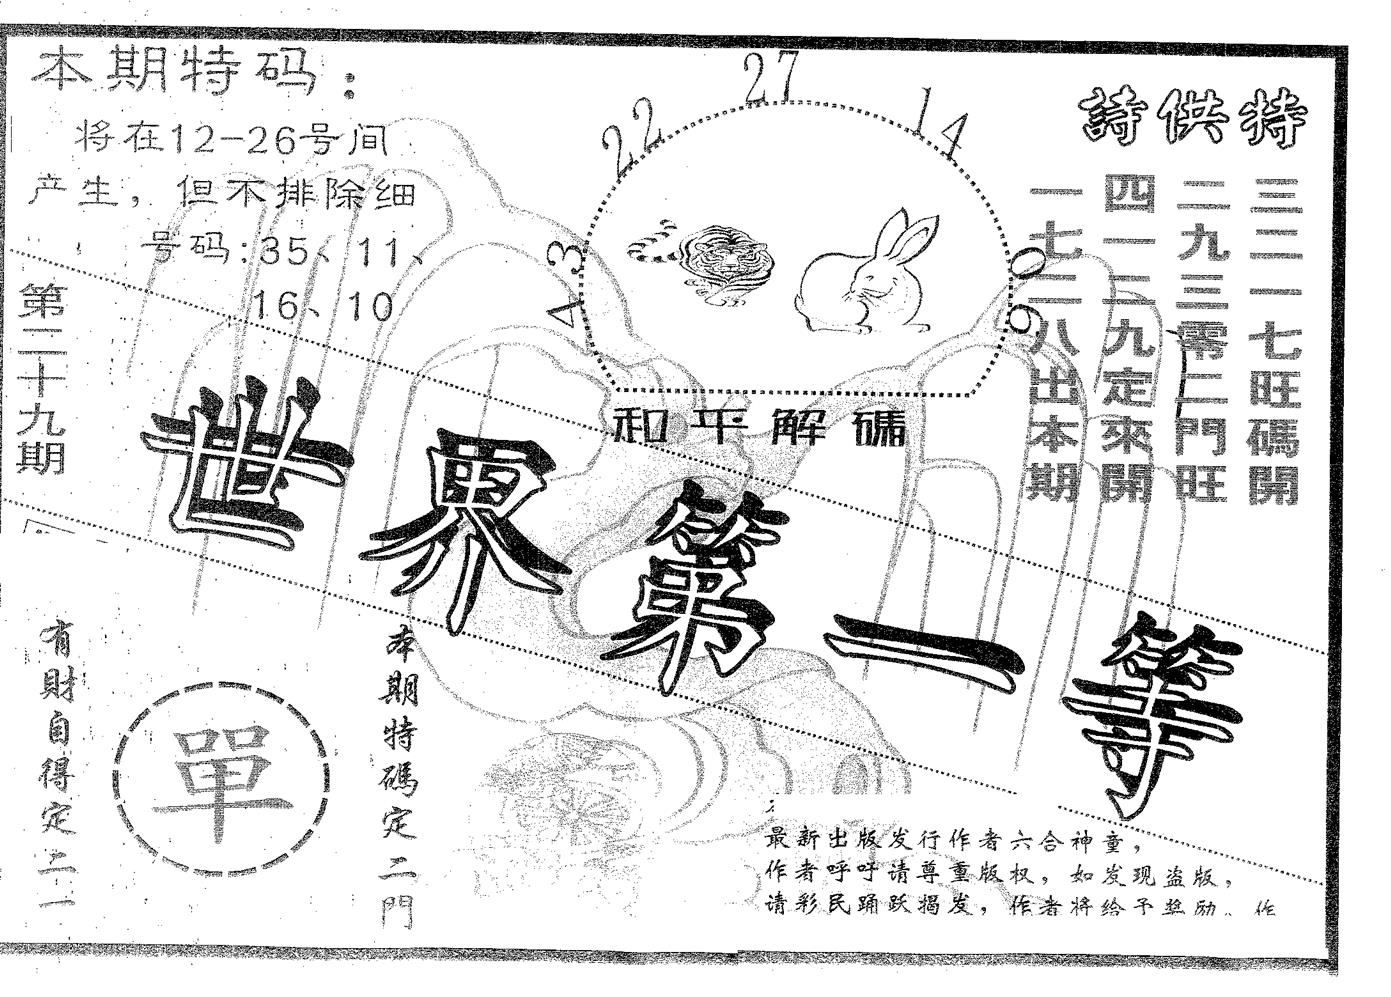 本期特码：
将在12-26号间
产生，但不排除细
号码:35、11、
16、10
第二十九期
22
27
14
43
09
和平解碼
特供詩
三三一七旺碼開
二九三零二門旺
四一二九定來開
一七二八出本期
世界第一等
有財自得定二一
單
本期特碼定二門
最新出版发行作者六合神童，
作者呼吁请尊重版权，如发现盗版，
请彩民踊跃揭发，作者将给予奖励。作